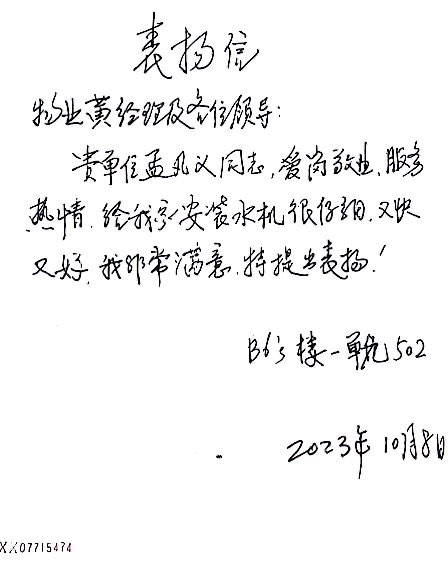 表扬信
物业黄经理及各位领导:
贵单位孟凡义同志,爱岗敬业,服务
热情,给我家安装水机很仔细,又快
又好,我非常满意,特提出表扬!
B6号楼一单元502
2023年10月8日
XX07715474